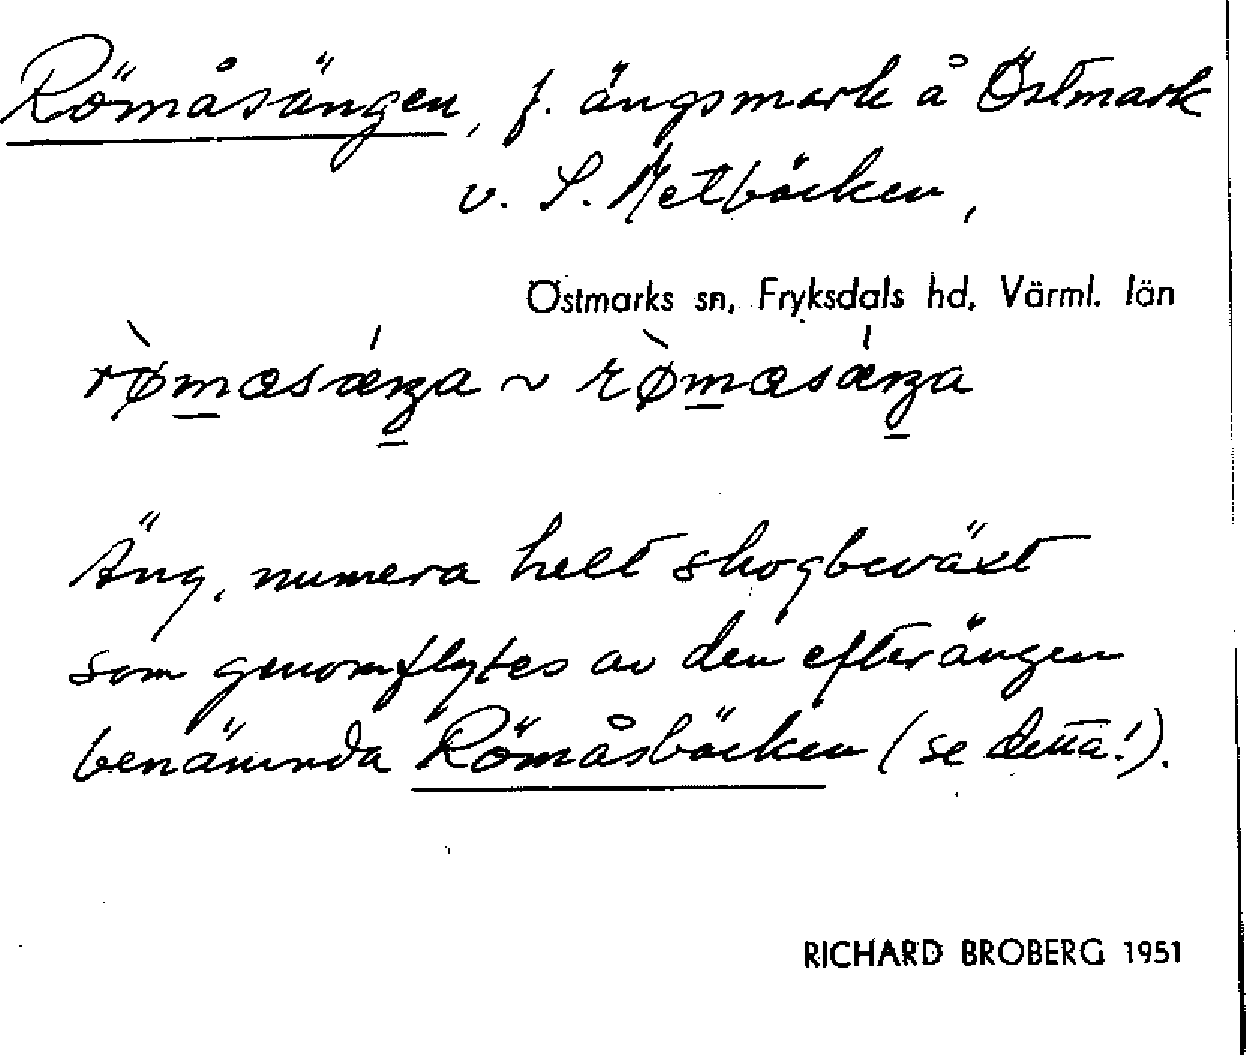 Römåsängen, f. ängsmark å Östmark
v. S. Metbäcken,
Östmarks sn, Fryksdals hd, Värml. län
rø̀mæsǽŋa ~ rø̀mæsǽŋa
Äng, numera helt skogbeväxt
som genomflytes av den efter ängen
benämnda Römåsbäcken (se detta!).
RICHARD BROBERG 1951